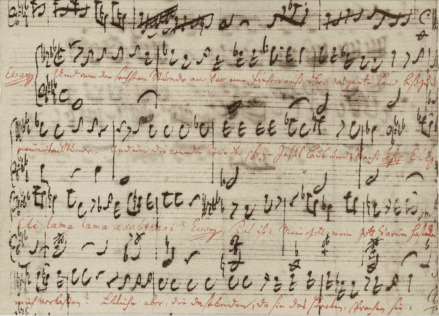 Evang Und von der sechsten Stunde an war eine Finsterniß über das gantze Land, biß zu der
neundten Stunde. Und um die neundte Stunde schrye Jesus laut und sprach: Eli
Eli lama lama asabthani? Evang Das ist: Mein Gott, mein Gott warum hast du
mich verlassen? Etliche aber, die da stunden, da sie das höreten, sprachen sie: